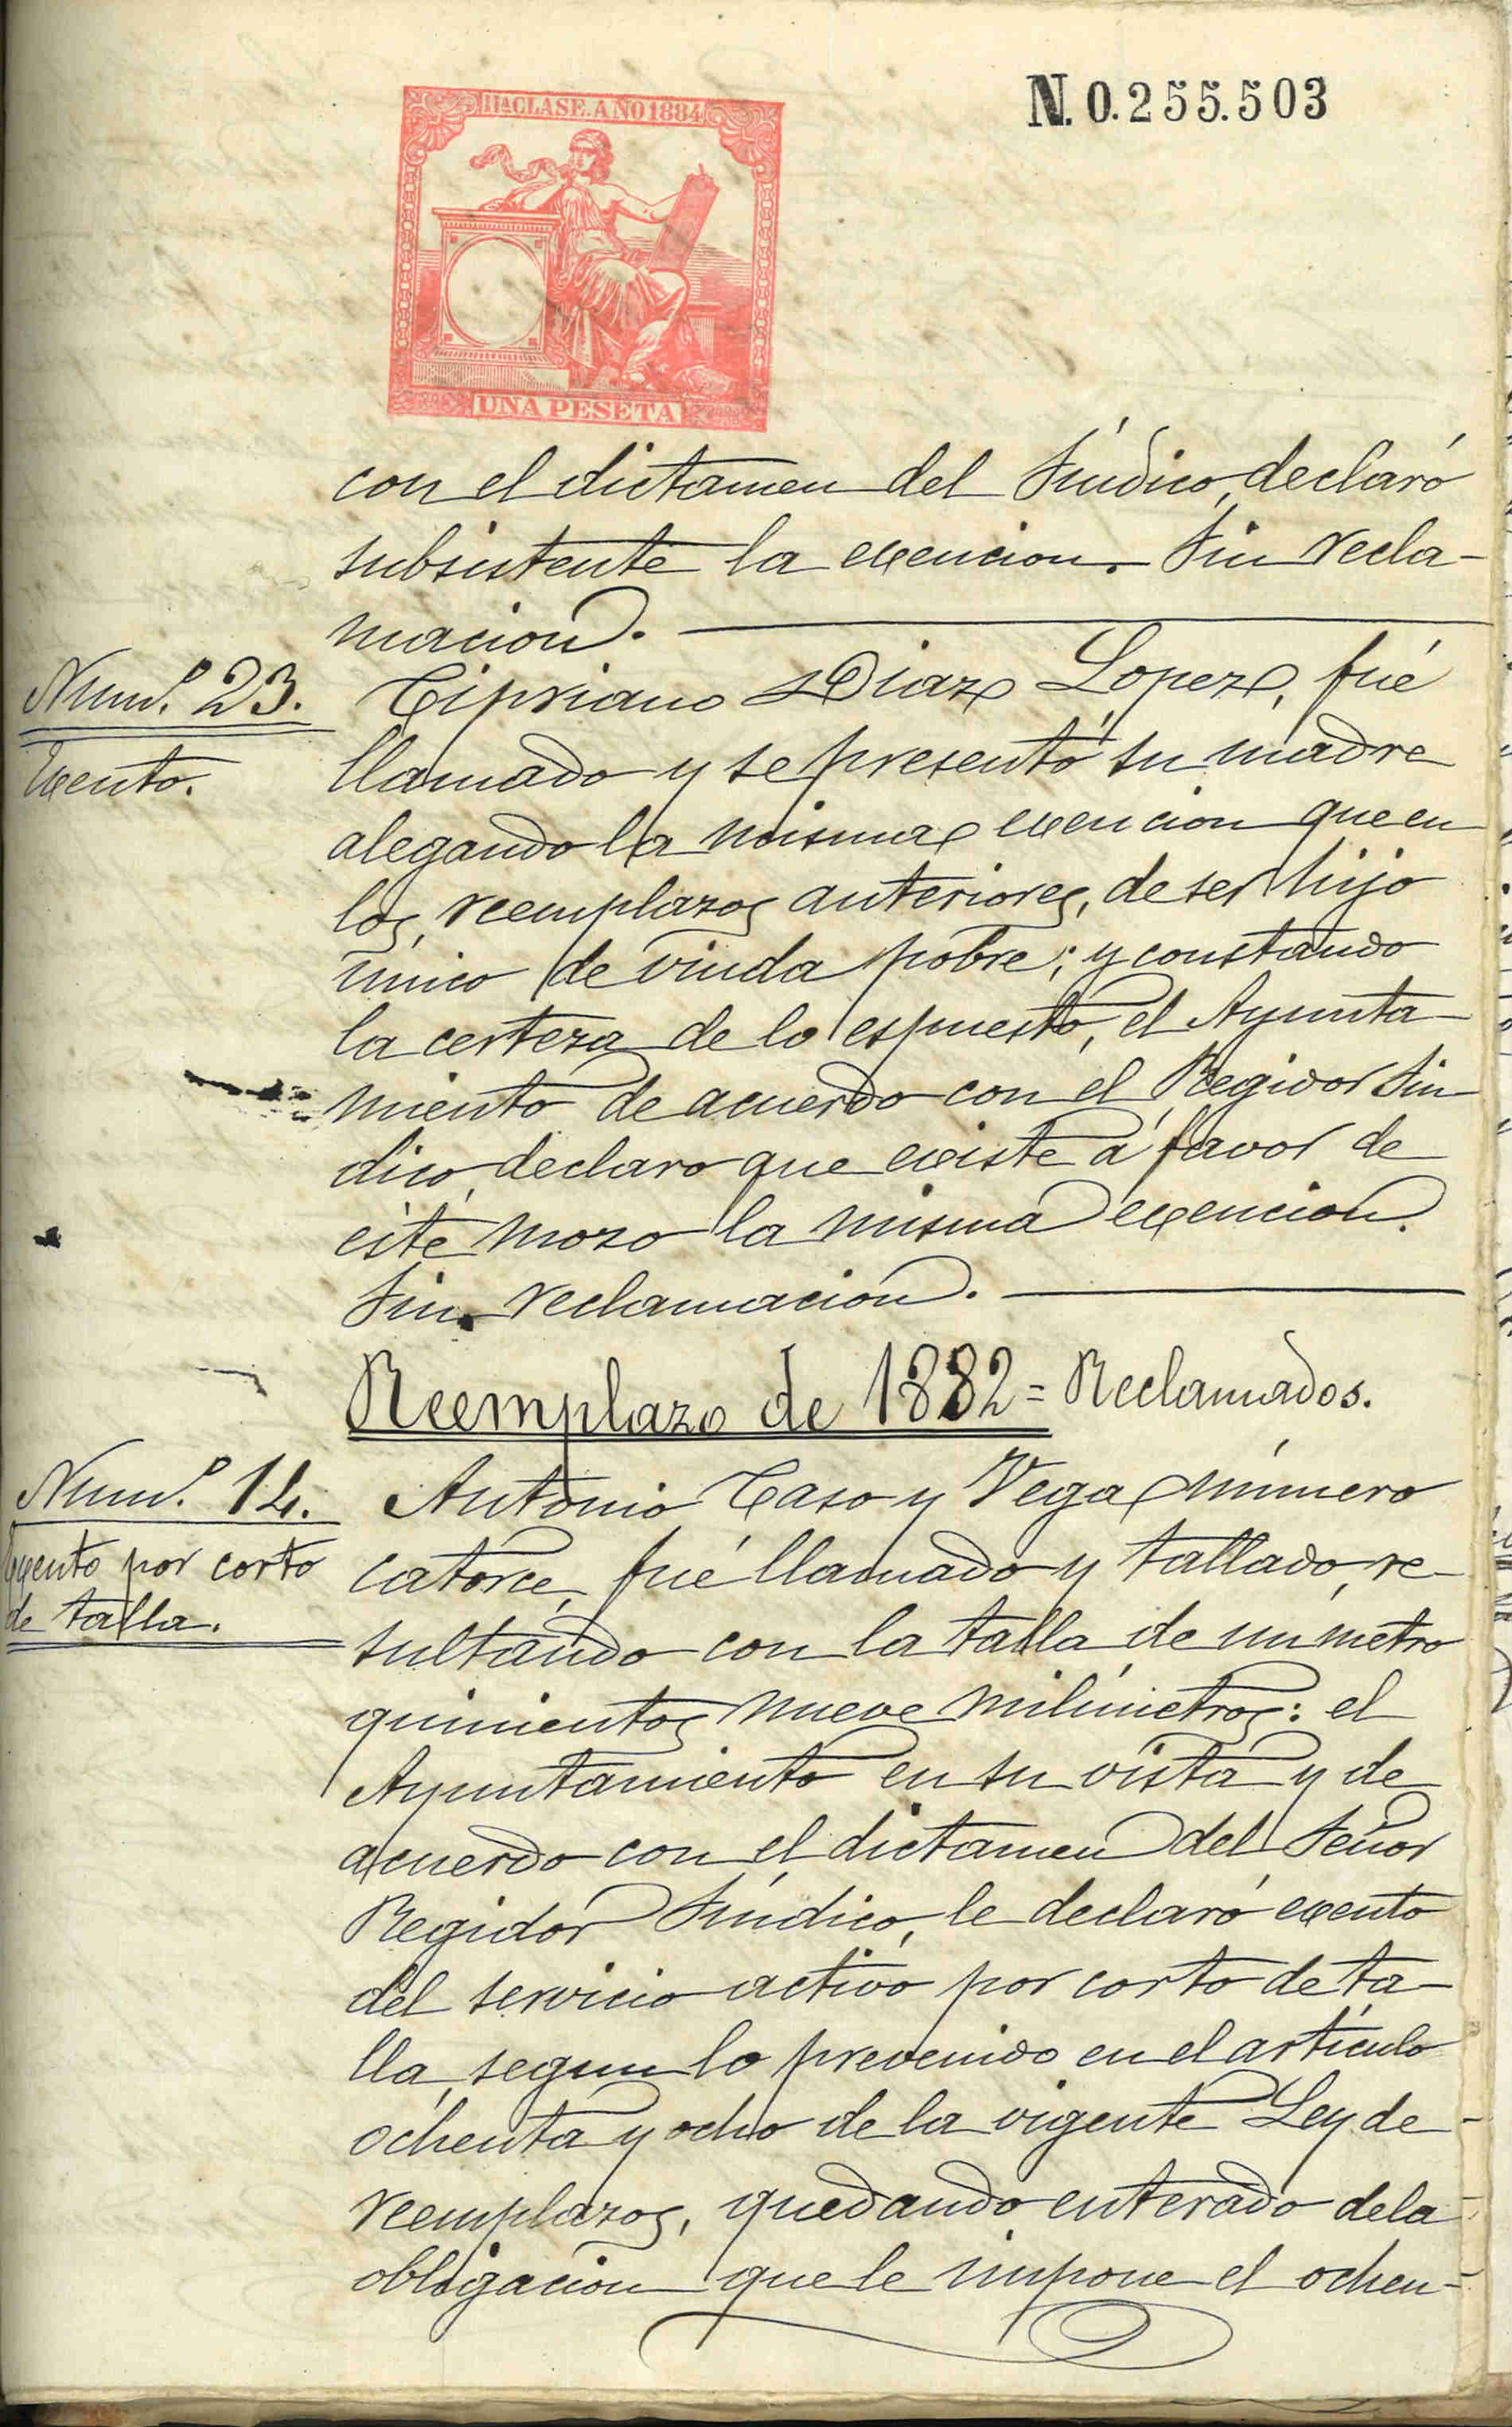 N. 0.255.503
11ª CLASE. AÑO 1884
UNA PESETA
con el dictamen del Síndico, declaró
subsistente la exencion. Sin recla-
macion.
Num.º 23.
Exento.
Cipriano Diaz Lopez, fué
llamado y se presentó su madre
alegando la misma exencion que en
los reemplazos anteriores, de ser hijo
único de viuda pobre; y constando
la certeza de lo espuesto, el Ayunta-
miento de acuerdo con el Regidor Sín
dico, declaro que existe á favor de
éste mozo la misma exencion.
Sin reclamacion.
Reemplazo de 1882 = Reclamados.
Num.º 14.
Exento por corto
de talla.
Antonio Caso y Vega número
catorce, fué llamado y tallado, re-
sultando con la talla de un metro
quinientos nueve milímetros: el
Ayuntamiento en su vista y de
acuerdo con el dictamen del Señor
Regidor Síndico, le declaró exento
del servicio activo por corto de ta-
lla, segun lo prevenido en el artículo
ochenta y ocho de la vigente Ley de
reemplazos, quedando enterado de la
obligacion que le impone el ochen-